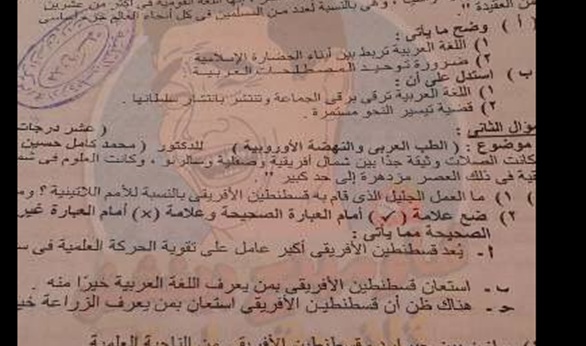 من العقيدة " . وهى بالنسبة لعدد من المسلمين فى كل أنحاء العالم جزء أساسى
( أ ) وضح ما يأتى :
١) اللغة العربية تربط بين أبناء الحضارة الإسلامية
٢) ضرورة توحيد المصطلحات العربية
ب) استدل على أن :
١) اللغة العربية ترقى برقى الجماعة وتنتشر بانتشار سلطانها .
٢) قضية تيسير النحو مستمرة .
السؤال الثانى : ( عشر درجات
موضوع : ( الطب العربى والنهضة الأوروبية ) للدكتور ( محمد كامل حسين
كانت الصلات وثيقة جدًا بين شمال أفريقية وصقلية وسالرنو ، وكانت العلوم فى
قية فى ذلك العصر مزدهرة إلى حد كبير " .
١) ما العمل الجليل الذى قام به قسطنطين الأفريقى بالنسبة للأمم اللاتينية ؟
٢) ضع علامة (✓) أمام العبارة الصحيحة وعلامة (x) أمام العبارة غير
الصحيحة مما يأتى :
أ- يُعد قسطنطين الأفريقى أكبر عامل على تقوية الحركة العلمية فى
ب- استعان قسطنطين الأفريقى بمن يعرف اللغة العربية خيرًا منه .
حـ- هناك ظن أن قسطنطين الأفريقى استعان بمن يعرف الزراعة
قسطنطين الأفريقى من الناحية العلمية